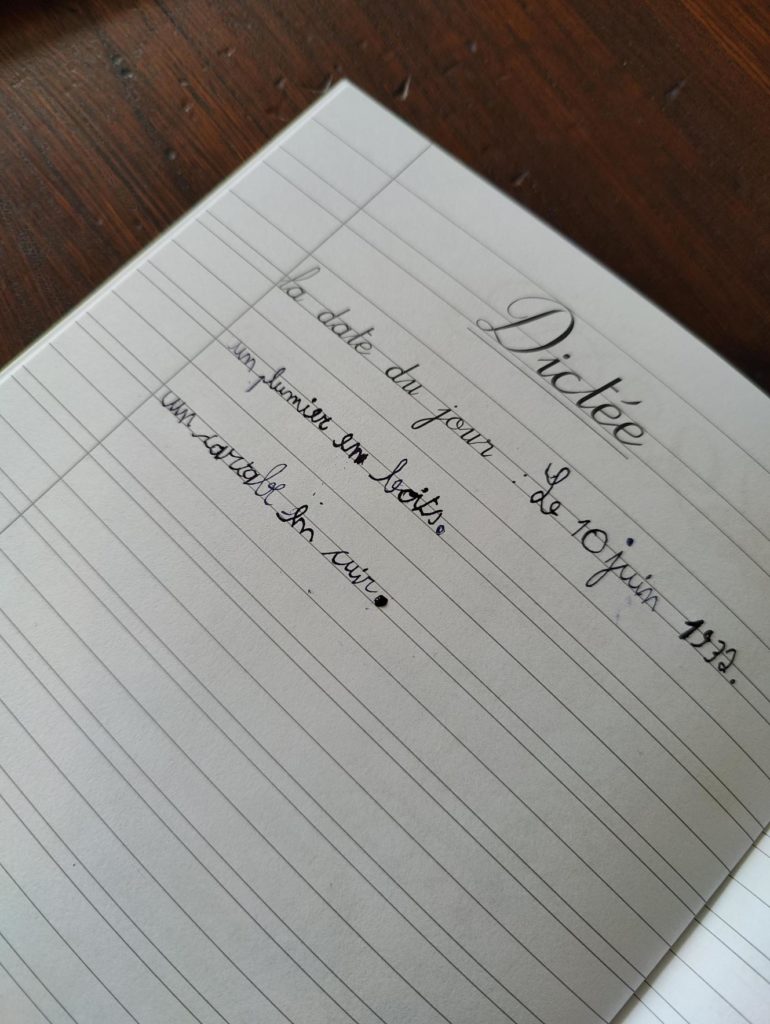 Dictée
la date du jour : Le 10 juin 1932.
un plumier en bois.
un cartable en cuir.